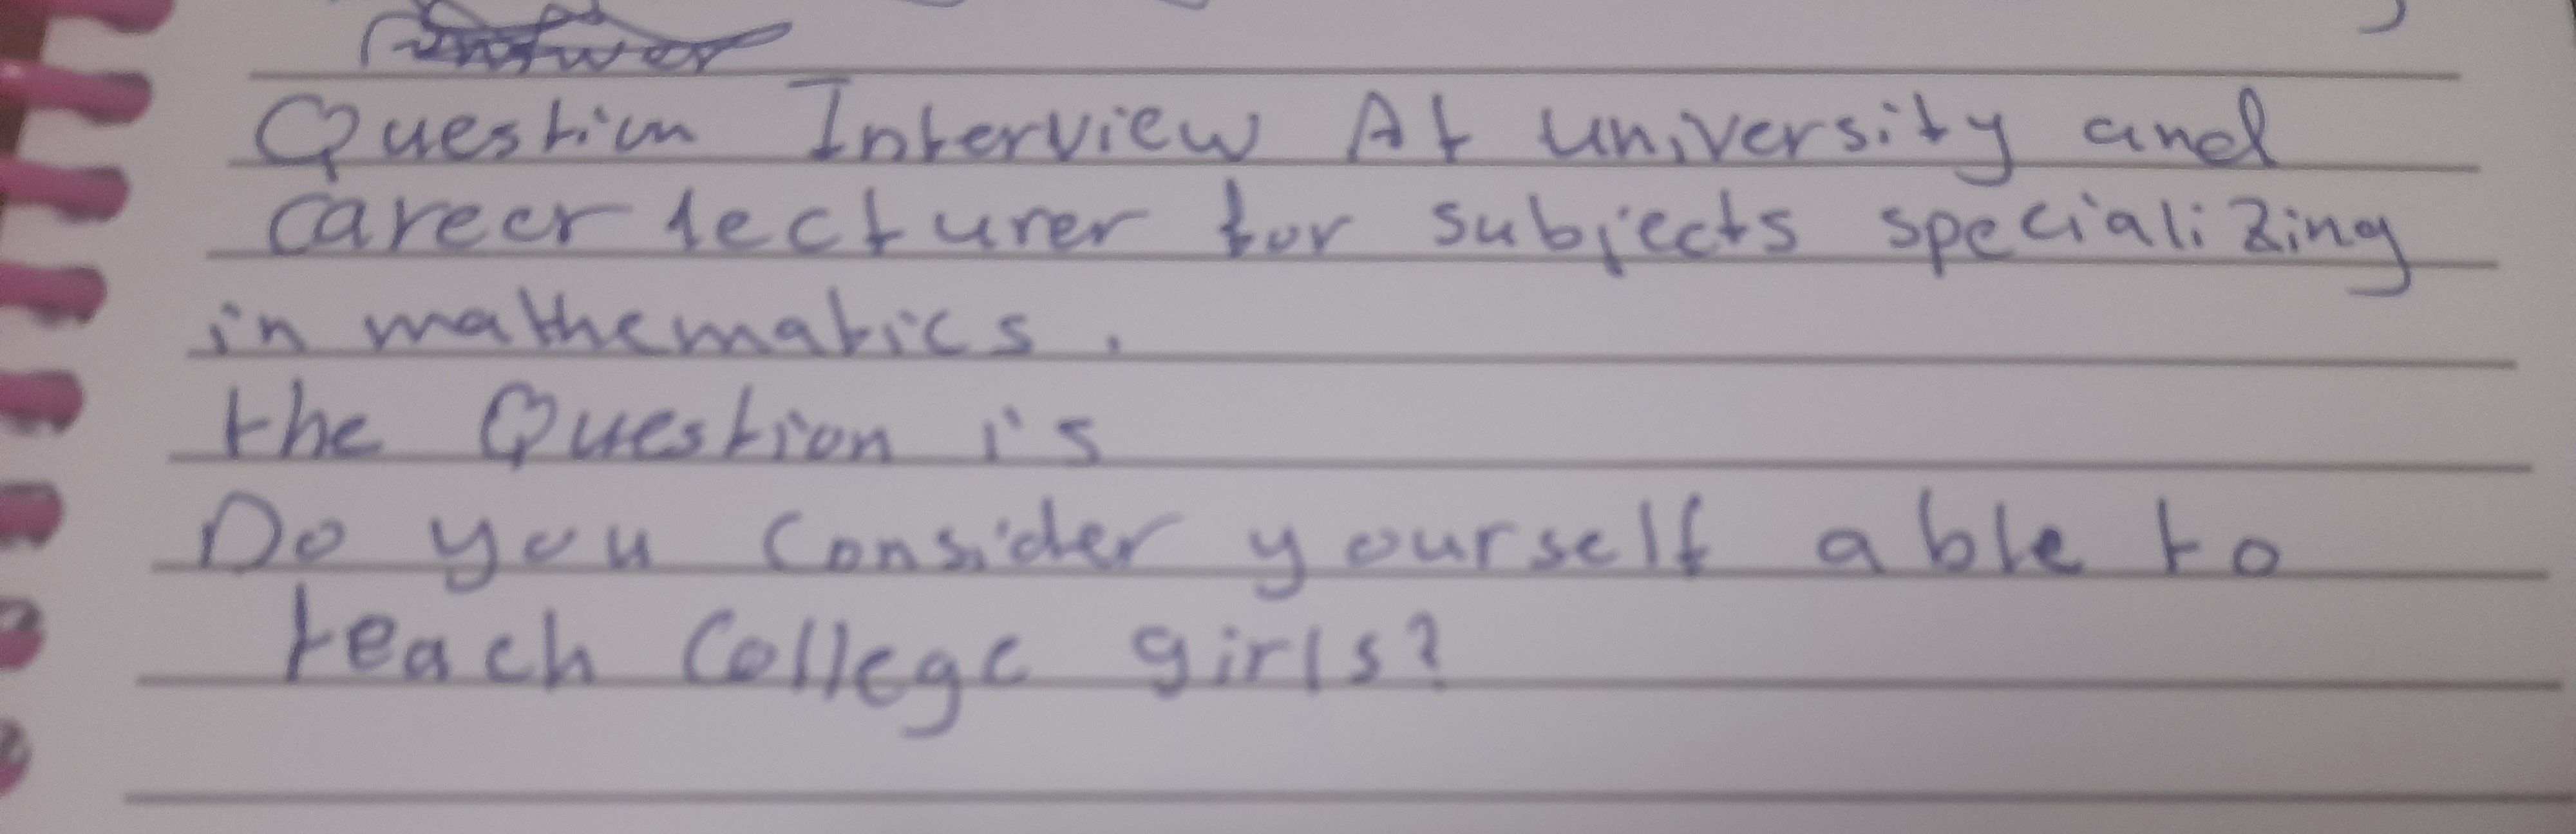 Question Interview At university and
career lecturer for subjects specializing
in mathematics.
the Question is
Do you Consider yourself able to
teach College girls?